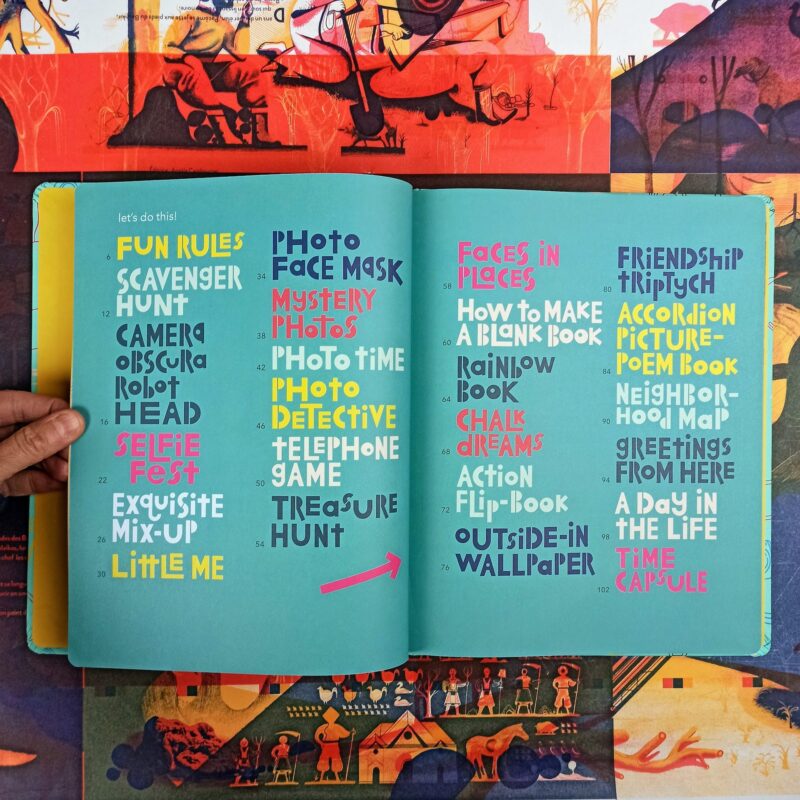 let's do this!
6 FUN RULES
SCAVENGER
12 HUNT
CAMERA
OBSCURA
ROBOT
16 HEAD
SELFIE
22 FEST
EXQUISITE
26 MIX-UP
30 LITTLE ME
PHOTO
34 FACE MASK
MYSTERY
38 PHOTOS
42 PHOTO TIME
PHOTO
46 DETECTIVE
TELEPHONE
50 GAME
TREASURE
54 HUNT
FACES IN
58 PLACES
HOW TO MAKE
60 A BLANK BOOK
RAINBOW
64 BOOK
CHALK
68 DREAMS
ACTION
72 FLIP-BOOK
OUTSIDE-IN
76 WALLPAPER
FRIENDSHIP
80 TRIPTYCH
ACCORDION
PICTURE-
84 POEM BOOK
NEIGHBOR-
90 HOOD MAP
GREETINGS
94 FROM HERE
A DAY IN
98 THE LIFE
TIME
102 CAPSULE